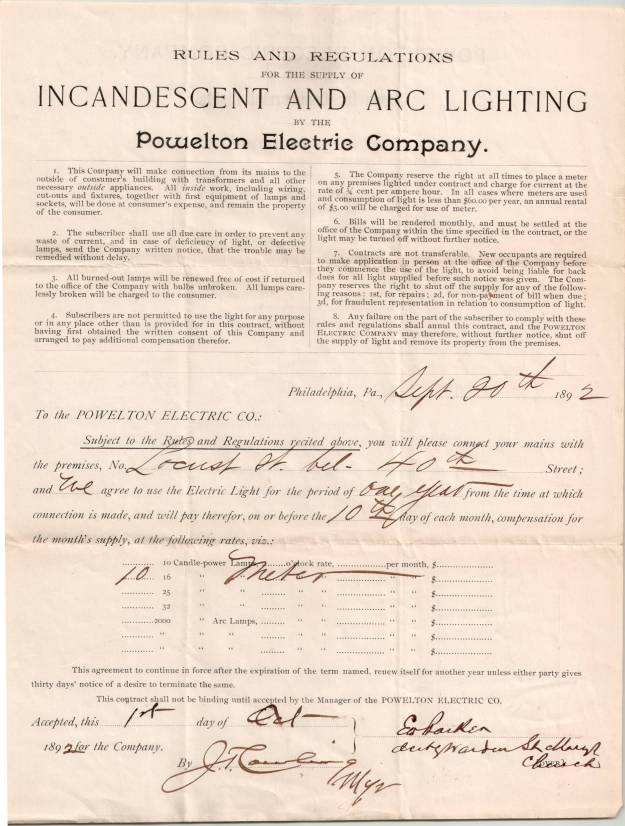 RULES AND REGULATIONS
FOR THE SUPPLY OF
INCANDESCENT AND ARC LIGHTING
BY THE
Powelton Electric Company.
1. This Company will make connection from its mains to the
outside of consumer's building with transformers and all other
necessary outside appliances. All inside work, including wiring,
cut-outs and fixtures, together with first equipment of lamps and
sockets, will be done at consumer's expense, and remain the property
of the consumer.
2. The subscriber shall use all due care in order to prevent any
waste of current, and in case of deficiency of light, or defective
lamps, send the Company written notice, that the trouble may be
remedied without delay.
3. All burned-out lamps will be renewed free of cost if returned
to the office of the Company with bulbs unbroken. All lamps care-
lessly broken will be charged to the consumer.
4. Subscribers are not permitted to use the light for any purpose
or in any place other than is provided for in this contract, without
having first obtained the written consent of this Company and
arranged to pay additional compensation therefor.
5. The Company reserve the right at all times to place a meter
on any premises lighted under contract and charge for current at the
rate of ¾ cent per ampere hour. In all cases where meters are used
and consumption of light is less than $60.00 per year, an annual rental
of $5.00 will be charged for use of meter.
6. Bills will be rendered monthly, and must be settled at the
office of the Company within the time specified in the contract, or the
light may be turned off without further notice.
7. Contracts are not transferable. New occupants are required
to make application in person at the office of the Company before
they commence the use of the light, to avoid being liable for back
dues for all light supplied before such notice was given. The Com-
pany reserves the right to shut off the supply for any of the follow-
ing reasons: 1st, for repairs; 2d, for non-payment of bill when due;
3d, for fraudulent representation in relation to consumption of light.
8. Any failure on the part of the subscriber to comply with these
rules and regulations shall annul this contract, and the POWELTON
ELECTRIC COMPANY may therefore, without further notice, shut off
the supply of light and remove its property from the premises.
Philadelphia, Pa., Sept. 20th 1892
To the POWELTON ELECTRIC CO.:
Subject to the Rules and Regulations recited above, you will please connect your mains with
the premises, No. Locust St. bel. 40th Street;
and We agree to use the Electric Light for the period of one year from the time at which
connection is made, and will pay therefor, on or before the 10th day of each month, compensation for
the month's supply, at the following rates, viz.:
10 Candle-power Lamps, o'clock rate, per month, $
10 16 " " Meter " " $
25 " " " " $
32 " " " " $
2000 " Arc Lamps, " " $
" " " " $
" " " " $
This agreement to continue in force after the expiration of the term named, renew itself for another year unless either party gives
thirty days' notice of a desire to terminate the same.
This contract shall not be binding until accepted by the Manager of the POWELTON ELECTRIC CO.
Accepted, this 1st day of Oct
1892 for the Company.
By
Mgr
Warden St. Mary's
Church